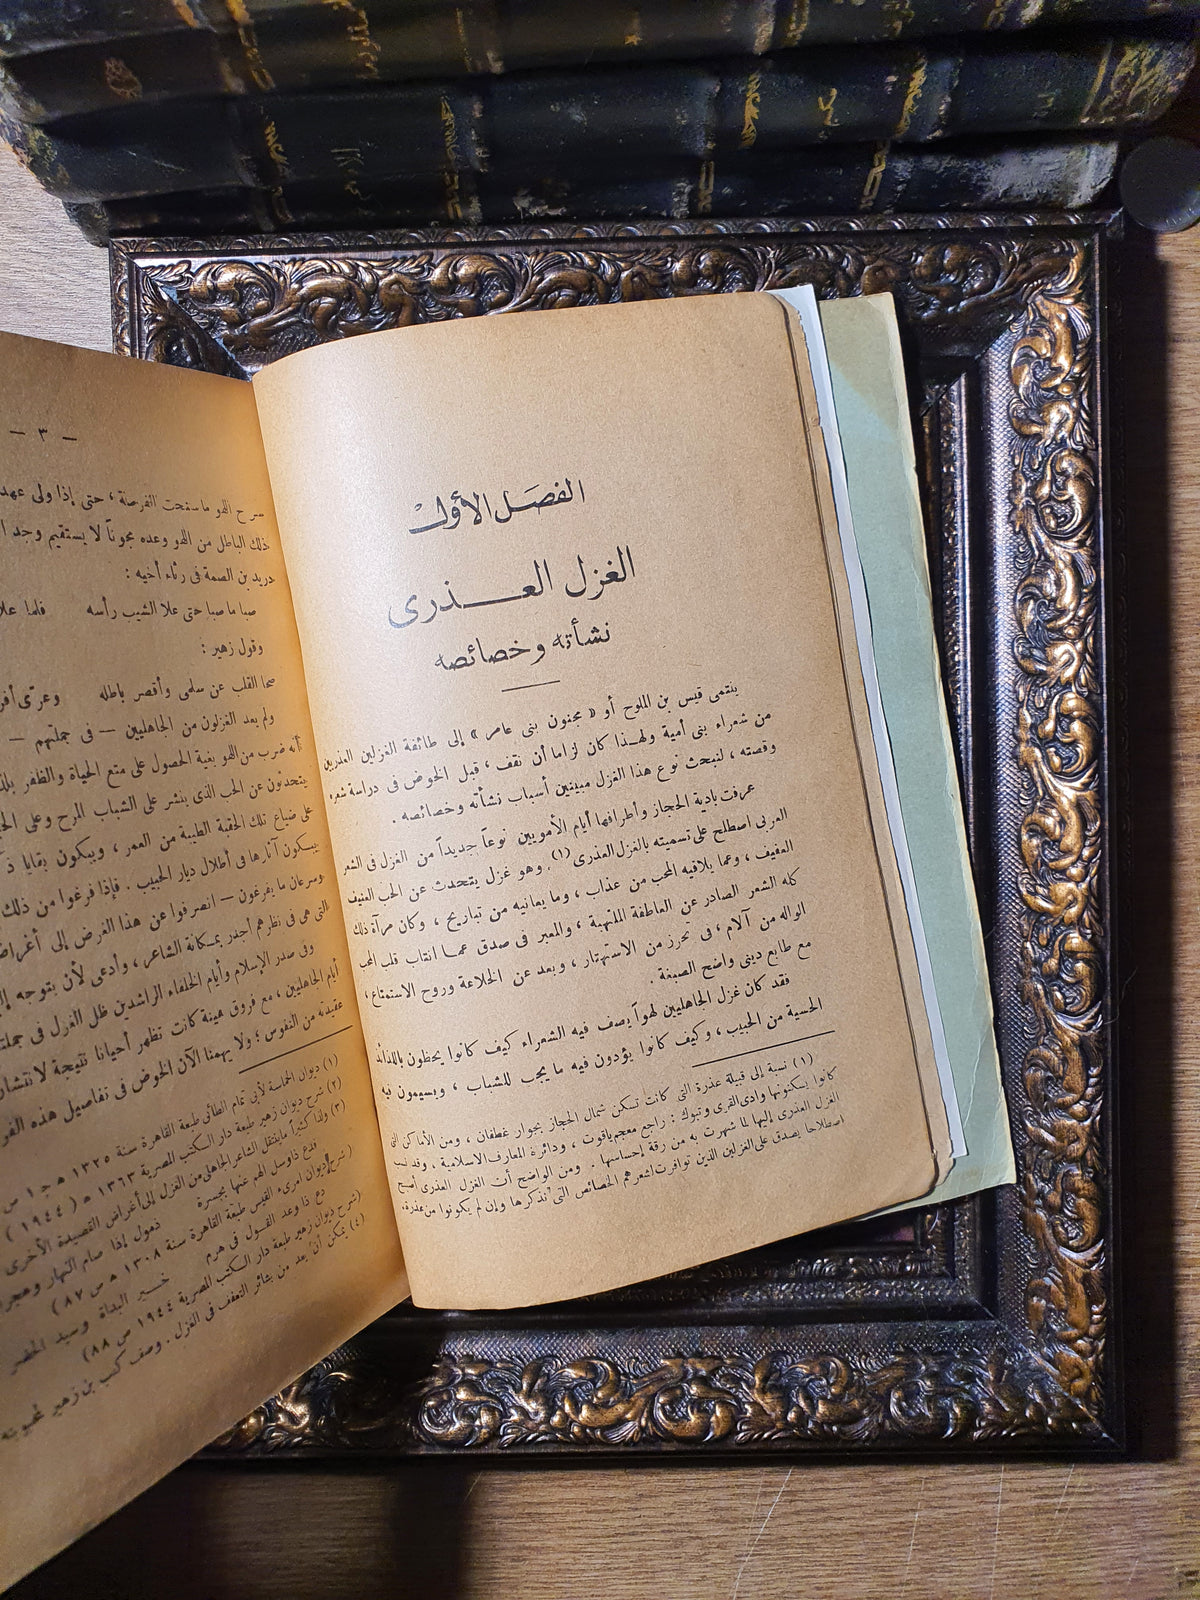 الفصل الأول
الغزل العـــذرى
نشأته وخصائصه
ينتمى قيس بن الملوح أو « مجنون بنى عامر » إلى طائفة الغزلين العذريين
من شعراء بنى أمية ولهذا كان لزاما أن نقف ، قبل الخوض فى دراسة شعره
وقصته ، لنبحث نوع هذا الغزل مبينين أسباب نشأته وخصائصه .
عرفت بادية الحجاز وأطرافها أيام الأمويين نوعاً جديداً من الغزل فى الشعر
العربى اصطلح على تسميته بالغزل العذرى (١) وهو غزل يتحدث عن الحب العنيف
العفيف ، وعما يلاقيه المحب من عذاب ، وما يعانيه من تباريح ، وكان مرآة ذلك
كله الشعر الصادر عن العاطفة الملتهبة ، والمعبر فى صدق عما انتاب قلب المحب
الواله من آلام ، فى تحرز من الاستهتار ، وبعد عن الخلاعة وروح الاستمتاع ،
مع طابع دينى واضح الصبغة .
فقد كان غزل الجاهليين لهواً يصف فيه الشعراء كيف كانوا يحظون باللذائذ
الحسية من الحبيب ، وكيف كانوا يؤدون فيه ما يجب للشباب ، ويسيمون فيه
(١) نسبة إلى قبيلة عذرة التى كانت تسكن شمال الحجاز بجوار غطفان ، ومن الأماكن التى
كانوا يسكنونها وادى القرى وتبوك : راجع معجم ياقوت ، ودائرة المعارف الاسلامية . وقد نسب
الغزل العذرى إليها لما شهرت به من رقة إحساسها . ومن الواضح أن الغزل العذرى أصبح
اصطلاحا يصدق على الغزلين الذين توافرت لشعرهم الخصائص التى نذكرها وإن لم يكونوا من عذرة.
— ٣ —
سرح اللهو ما سنحت الفرصة ، حتى إذا ولى عهد
ذلك الباطل من اللهو وعده مجوناً لا يستقيم وجد
دريد بن الصمة فى رثاء أخيه :
صبا ما صبا حتى علا الشيب رأسه فلما علا
وقول زهير :
صحا القلب عن سلمى وأقصر باطله وعرّى
ولم يعد الغزلون من الجاهليين — فى جملتهم —
أنه ضرب من اللهو بغية الحصول على متع الحياة والظفر
يتحدثون عن الحب الذى ينشر على الشباب المرح وعلى
على ضياع تلك الحقبة الطيبة من العمر ، ويبكون بقايا
يبسكون آثارها فى أطلال ديار الحبيب . فإذا فرغوا من ذلك
وسرعان ما يفرغون — انصرفوا عن هذا الغرض إلى
التى هى فى نظرهم أجدر بمكانة الشاعر ، وأدعى لأن يتوجه
وفى صدر الإسلام وأيام الخلفاء الراشدين ظل الغزل فى
أيام الجاهليين ، مع فروق هينة كانت تظهر أحيانا نتيجة
عقيدته من النفوس ؛ ولا يهمنا الآن الخوض فى تفاصيل هذه
(١) ديوان الحماسة لأبى تمام الطائى طبعة القاهرة سنة ١٣٢٥ هـ ج ١ ص
(٢) شرح ديوان زهير طبعة دار الكتب المصرية ١٣٦٣ هـ ( ١٩٤٤ )
(٣) ولذا كثيراً ما ينتقل الشاعر الجاهلى من الغزل إلى أغراض القصيدة الأخرى
فدع ذا وسل الهم عنها بجسرة ذمول إذا صام النهار وهجرا
( شرح ديوان امرىء القيس طبعة القاهرة سنة ١٣٠٨ هـ ص ٨٧ )
دع ذا وعد القول فى هرم خير البداة وسيد الحضر
(شرح ديوان زهير طبعة دار الكتب المصرية ١٩٤٤ ص ٨٨)
(٤) يمكن أن يعد من بشائر التعفف فى الغزل . وصف كعب بن زهير لمحبوبته